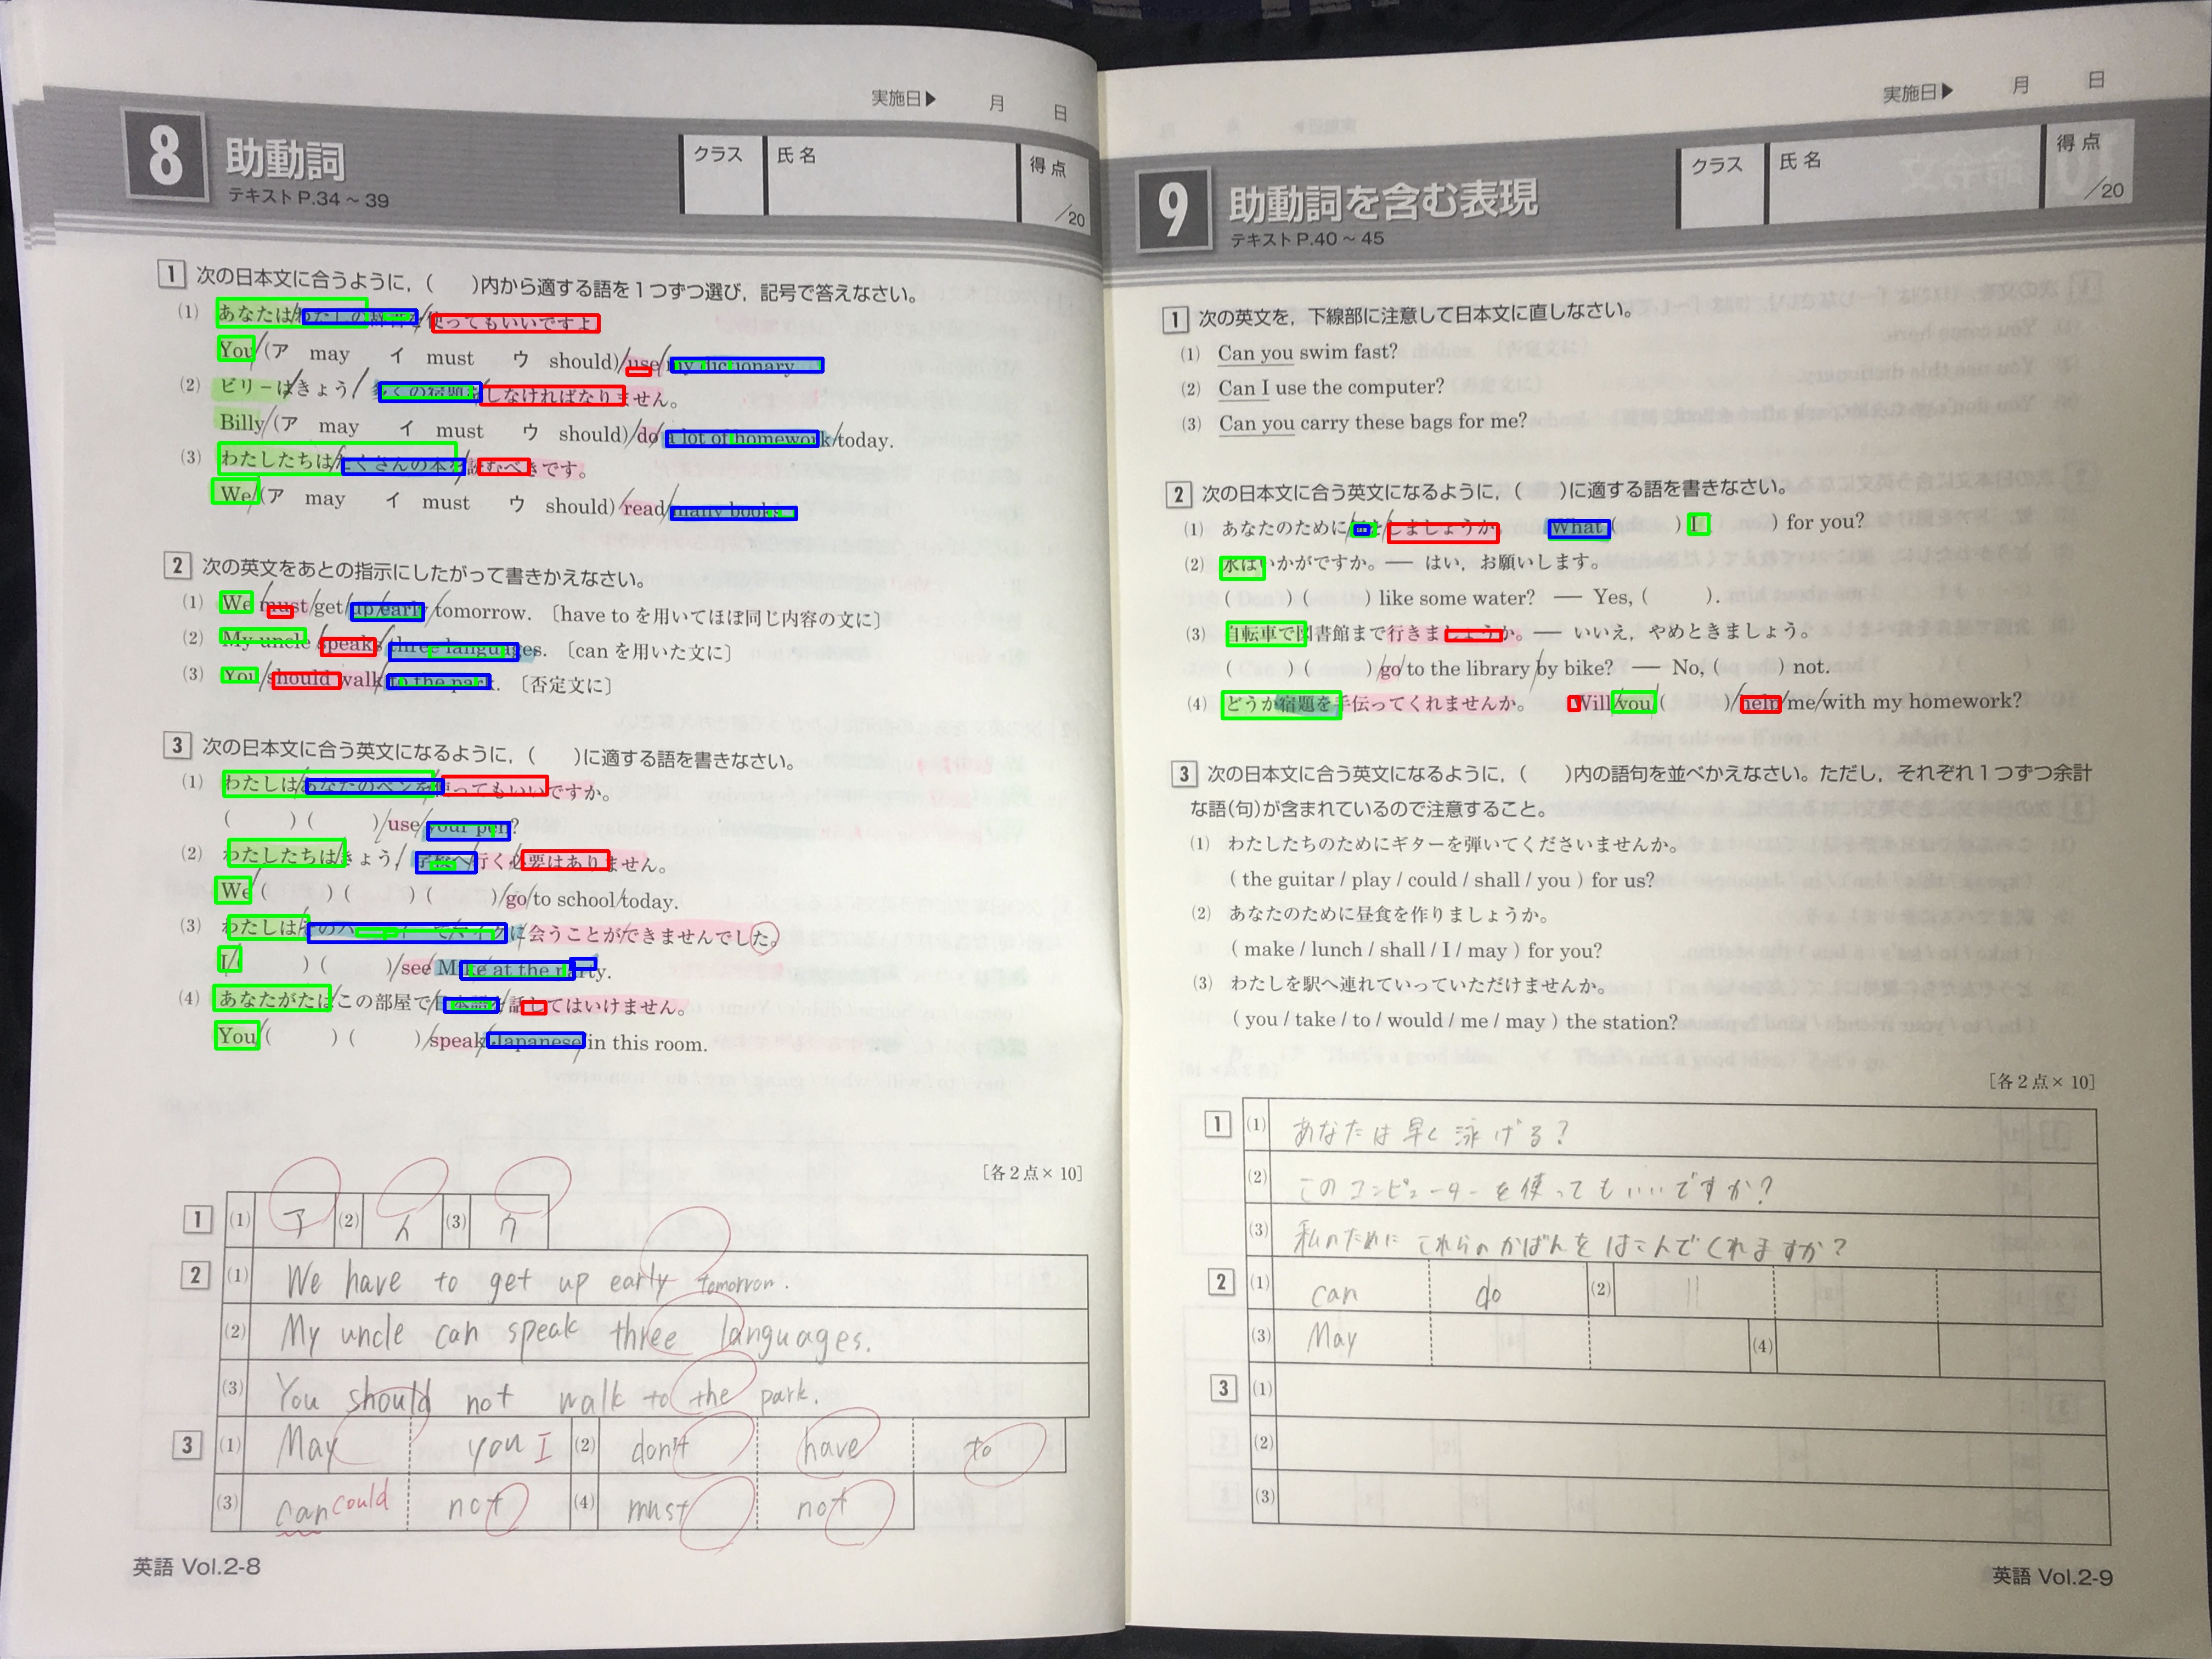 実施日▶ 月 日
8 助動詞
テキストP.34～39
クラス 氏名 得点 /20
1 次の日本文に合うように，( )内から適する語を1つずつ選び，記号で答えなさい。
(1) あなたは/わたしの辞書を/使ってもいいですよ
You/(ア may イ must ウ should)/use/my dictionary.
(2) ビリーは/きょう/多くの宿題を/しなければなりません。
Billy/(ア may イ must ウ should)/do/a lot of homework/today.
(3) わたしたちは/たくさんの本を/読むべきです。
We/(ア may イ must ウ should)/read/many books.
2 次の英文をあとの指示にしたがって書きかえなさい。
(1) We must/get/up/early/tomorrow.〔have toを用いてほぼ同じ内容の文に〕
(2) My uncle/speaks/three languages.〔canを用いた文に〕
(3) You/should walk/to the park.〔否定文に〕
3 次の日本文に合う英文になるように，( )に適する語を書きなさい。
(1) わたしは/あなたのペンを/使ってもいいですか。
( ) ( )/use/your pen?
(2) わたしたちは/きょう/学校へ/行く/必要はありません。
We ( ) ( ) ( )/go/to school/today.
(3) わたしは/そのパーティーでマイクに/会うことができませんでした。
I/( ) ( )/see/Mike at the party.
(4) あなたがたは/この部屋で/日本語を/話してはいけません。
You/( ) ( )/speak/Japanese/in this room.
[各2点×10]
1 (1) ア (2) イ (3) ウ
2 (1) We have to get up early tomorrow.
(2) My uncle can speak three languages.
(3) You should not walk to the park.
3 (1) May you I (2) don't have to
(3) can could not (4) must not
英語 Vol.2-8
実施日▶ 月 日
9 助動詞を含む表現
テキストP.40～45
クラス 氏名 得点 /20
1 次の英文を，下線部に注意して日本文に直しなさい。
(1) Can you swim fast?
(2) Can I use the computer?
(3) Can you carry these bags for me?
2 次の日本文に合う英文になるように，( )に適する語を書きなさい。
(1) あなたのために/何を/しましょうか What ( ) I ( ) for you?
(2) 水はいかがですか。― はい，お願いします。
( ) ( ) like some water? ― Yes, ( ).
(3) 自転車で図書館まで行きましょうか。― いいえ，やめときましょう。
( ) ( )/go/to the library/by bike? ― No, ( ) not.
(4) どうか宿題を手伝ってくれませんか。 Will/you/( )/help/me/with my homework?
3 次の日本文に合う英文になるように，( )内の語句を並べかえなさい。ただし，それぞれ1つずつ余計
な語(句)が含まれているので注意すること。
(1) わたしたちのためにギターを弾いてくださいませんか。
( the guitar / play / could / shall / you ) for us?
(2) あなたのために昼食を作りましょうか。
( make / lunch / shall / I / may ) for you?
(3) わたしを駅へ連れていっていただけませんか。
( you / take / to / would / me / may ) the station?
[各2点×10]
1 (1) あなたは早く泳げる？
(2) このコンピューターを使ってもいいですか？
(3) 私のためにこれらのかばんをはこんでくれますか？
2 (1) can do (2)
(3) May (4)
3 (1)
(2)
(3)
英語 Vol.2-9